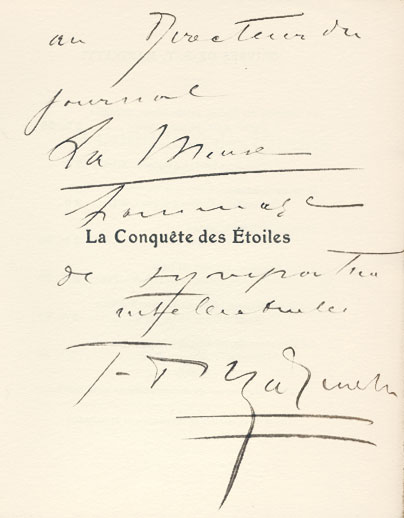 au Directeur du
journal
La Meuse
hommage
La Conquête des Étoiles
de sympathie
intellectuelle
F-T Marinetti